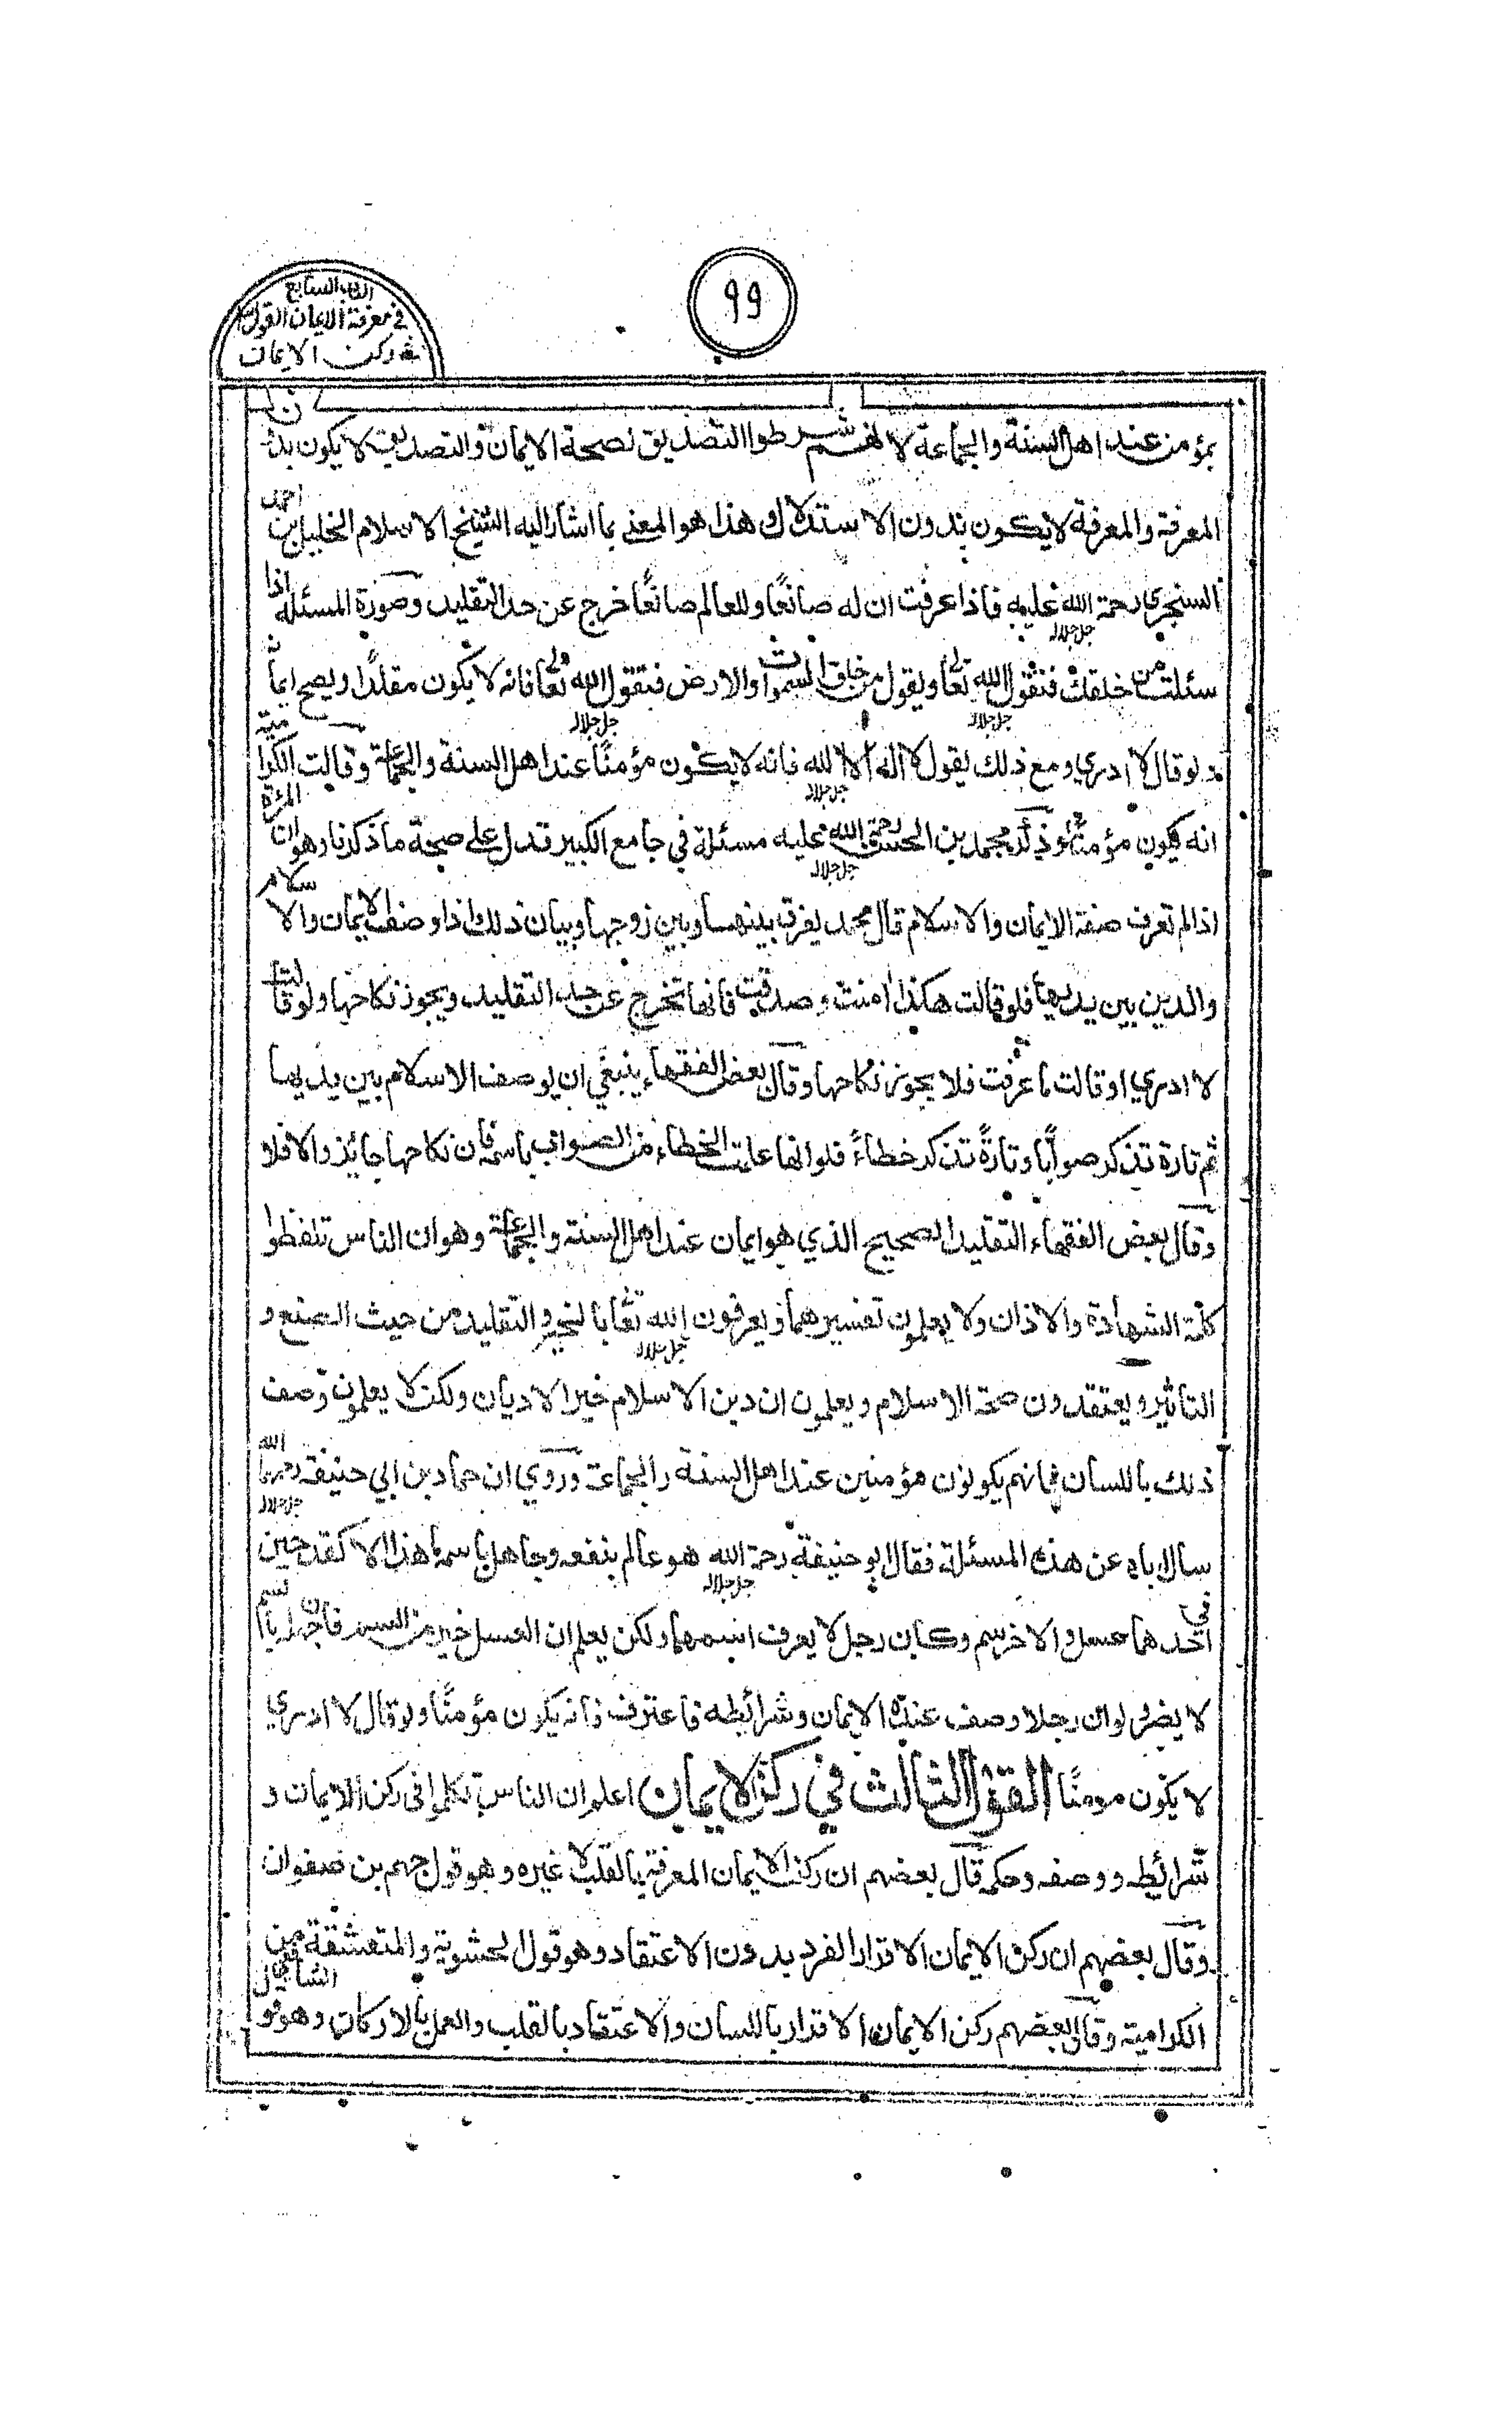 ٩٩
الباب السابع
في معرفة الايمان القول
ركن الايمان
بمؤمن عند اهل السنة والجماعة لانهم شرطوا التصديق لصحة الايمان والتصديق لا يكون بدون
المعرفة والمعرفة لا يكون بدون الاستدلال وهذا هو المعنى بما اشار اليه الشيخ الاسلام الخليل بن احمد
السنجري رحمة الله عليه فاذا عرفت ان له صانعًا وللعالم صانعًا خرج عن حد التقليد وصورة المسئلة اذا
جل جلاله
سئلت من خلقك فتقول الله تعالى ويقول من خلق السموات والارض فيقول الله تعالى فانه لا يكون مقلدًا ويصح ايمانه
جل جلاله جل جلاله
لوقال لا ادري ومع ذلك يقول لا اله الا الله فانه لا يكون مؤمنًا عند اهل السنة والجماعة وقالت الكرامية
جل جلاله
انه يكون مؤمنًا وذكر محمد بن الحسن رحمة الله عليه مسئلة في جامع الكبير تدل على صحة ما ذكرنا وهو ان المرءة
جل جلاله
اذا لم تعرف صفة الايمان والاسلام قال محمد يفرق بينهما وبين زوجها وبيان ذلك اذا وصف الايمان والاسلام
والدين بين يديها فلو قالت هكذا امنت وصدقت فانها تخرج عن حد التقليد ويجوز نكاحها ولو قالت
لا ادري او قالت ما عرفت فلا يجوز نكاحها وقال بعض الفقهاء ينبغي ان يوصف الاسلام بين يديها
ثم تارة تذكر صوابًا وتارةً تذكر خطاءً فلو انها علمت الخطاء من الصواب باسمه فان نكاحها جائز والا فلا
وقال بعض الفقهاء التقليد الصحيح الذي هو ايمان عند اهل السنة والجماعة وهو ان الناس تلفظوا
كلمة الشهادة والاذان ولا يعلمون تفسيرهما ويعرفون الله تعالى بالتقليد من حيث الصنع و
جل جلاله
التاثير ويعتقدون صحة الاسلام ويعلمون ان دين الاسلام خير الاديان ولكن لا يعلمون وصف
ذلك باللسان فانهم يكونون مؤمنين عند اهل السنة والجماعة وروي ان حماد بن ابي حنيفة رحمهما الله
جل جلاله
سال اباه عن هذه المسئلة فقال ابو حنيفة رحمة الله هو عالم بنفعه وجاهل باسمه هذا الا كقدحين
جل جلاله
في احدهما عسل والاخر سم وكان رجل لا يعرف اسمهما ولكن يعلم ان العسل خير من السم فان جهل بالاسم
لا يضر ولو ان رجلا وصف عنده الايمان وشرائطه فاعترف فانه يكون مؤمنًا ولو قال لا ادري
لا يكون مومنًا القول الثالث في ركن الايمان اعلم ان الناس تكلموا في ركن الايمان و
شرائطه ووصفه وحكمه قال بعضهم ان ركن الايمان المعرفة بالقلب لا غيره وهو قول جهم بن صفوان
وقال بعضهم ان ركن الايمان الاقرار الفرد بدون الاعتقاد وهو قول الحشوية والمتعشقة من
الكرامية وقال بعضهم ركن الايمان الاقرار باللسان والاعتقاد بالقلب والعمل بالاركان وهو قول الشافعي